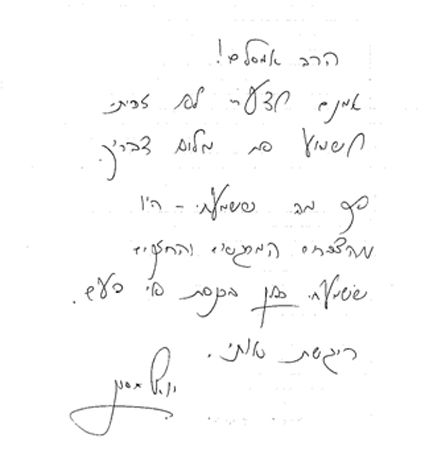 הרב אמסלם!
אמנם לצערי לא זכיתי
לשמוע את מלוא דבריך.
אך מה ששמעתי - היו
מהדברים המרגשים והחזקים
ששמעתי כאן בכנסת אי פעם.
ריגשת אותי.
יואל חסון